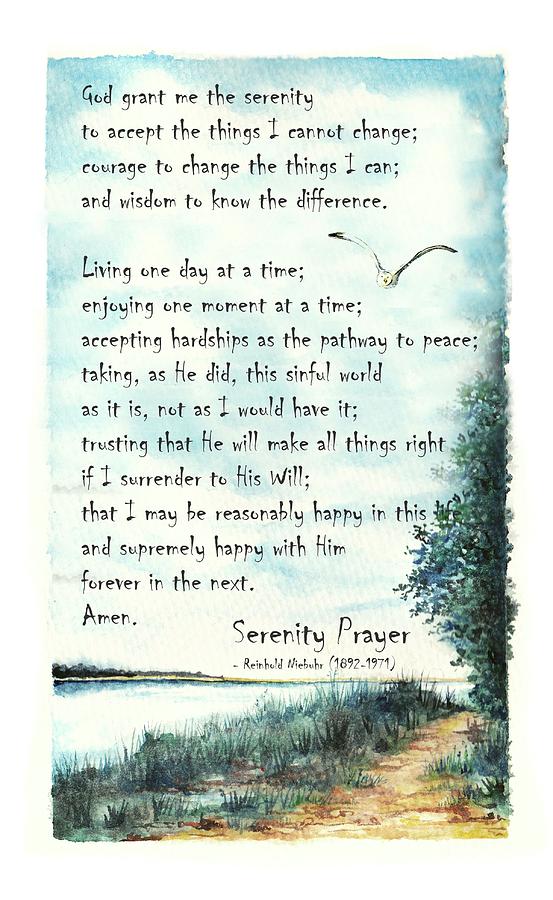 God grant me the serenity
to accept the things I cannot change;
courage to change the things I can;
and wisdom to know the difference.
Living one day at a time;
enjoying one moment at a time;
accepting hardships as the pathway to peace;
taking, as He did, this sinful world
as it is, not as I would have it;
trusting that He will make all things right
if I surrender to His Will;
that I may be reasonably happy in this life
and supremely happy with Him
forever in the next.
Amen.
Serenity Prayer
- Reinhold Niebuhr (1892-1971)